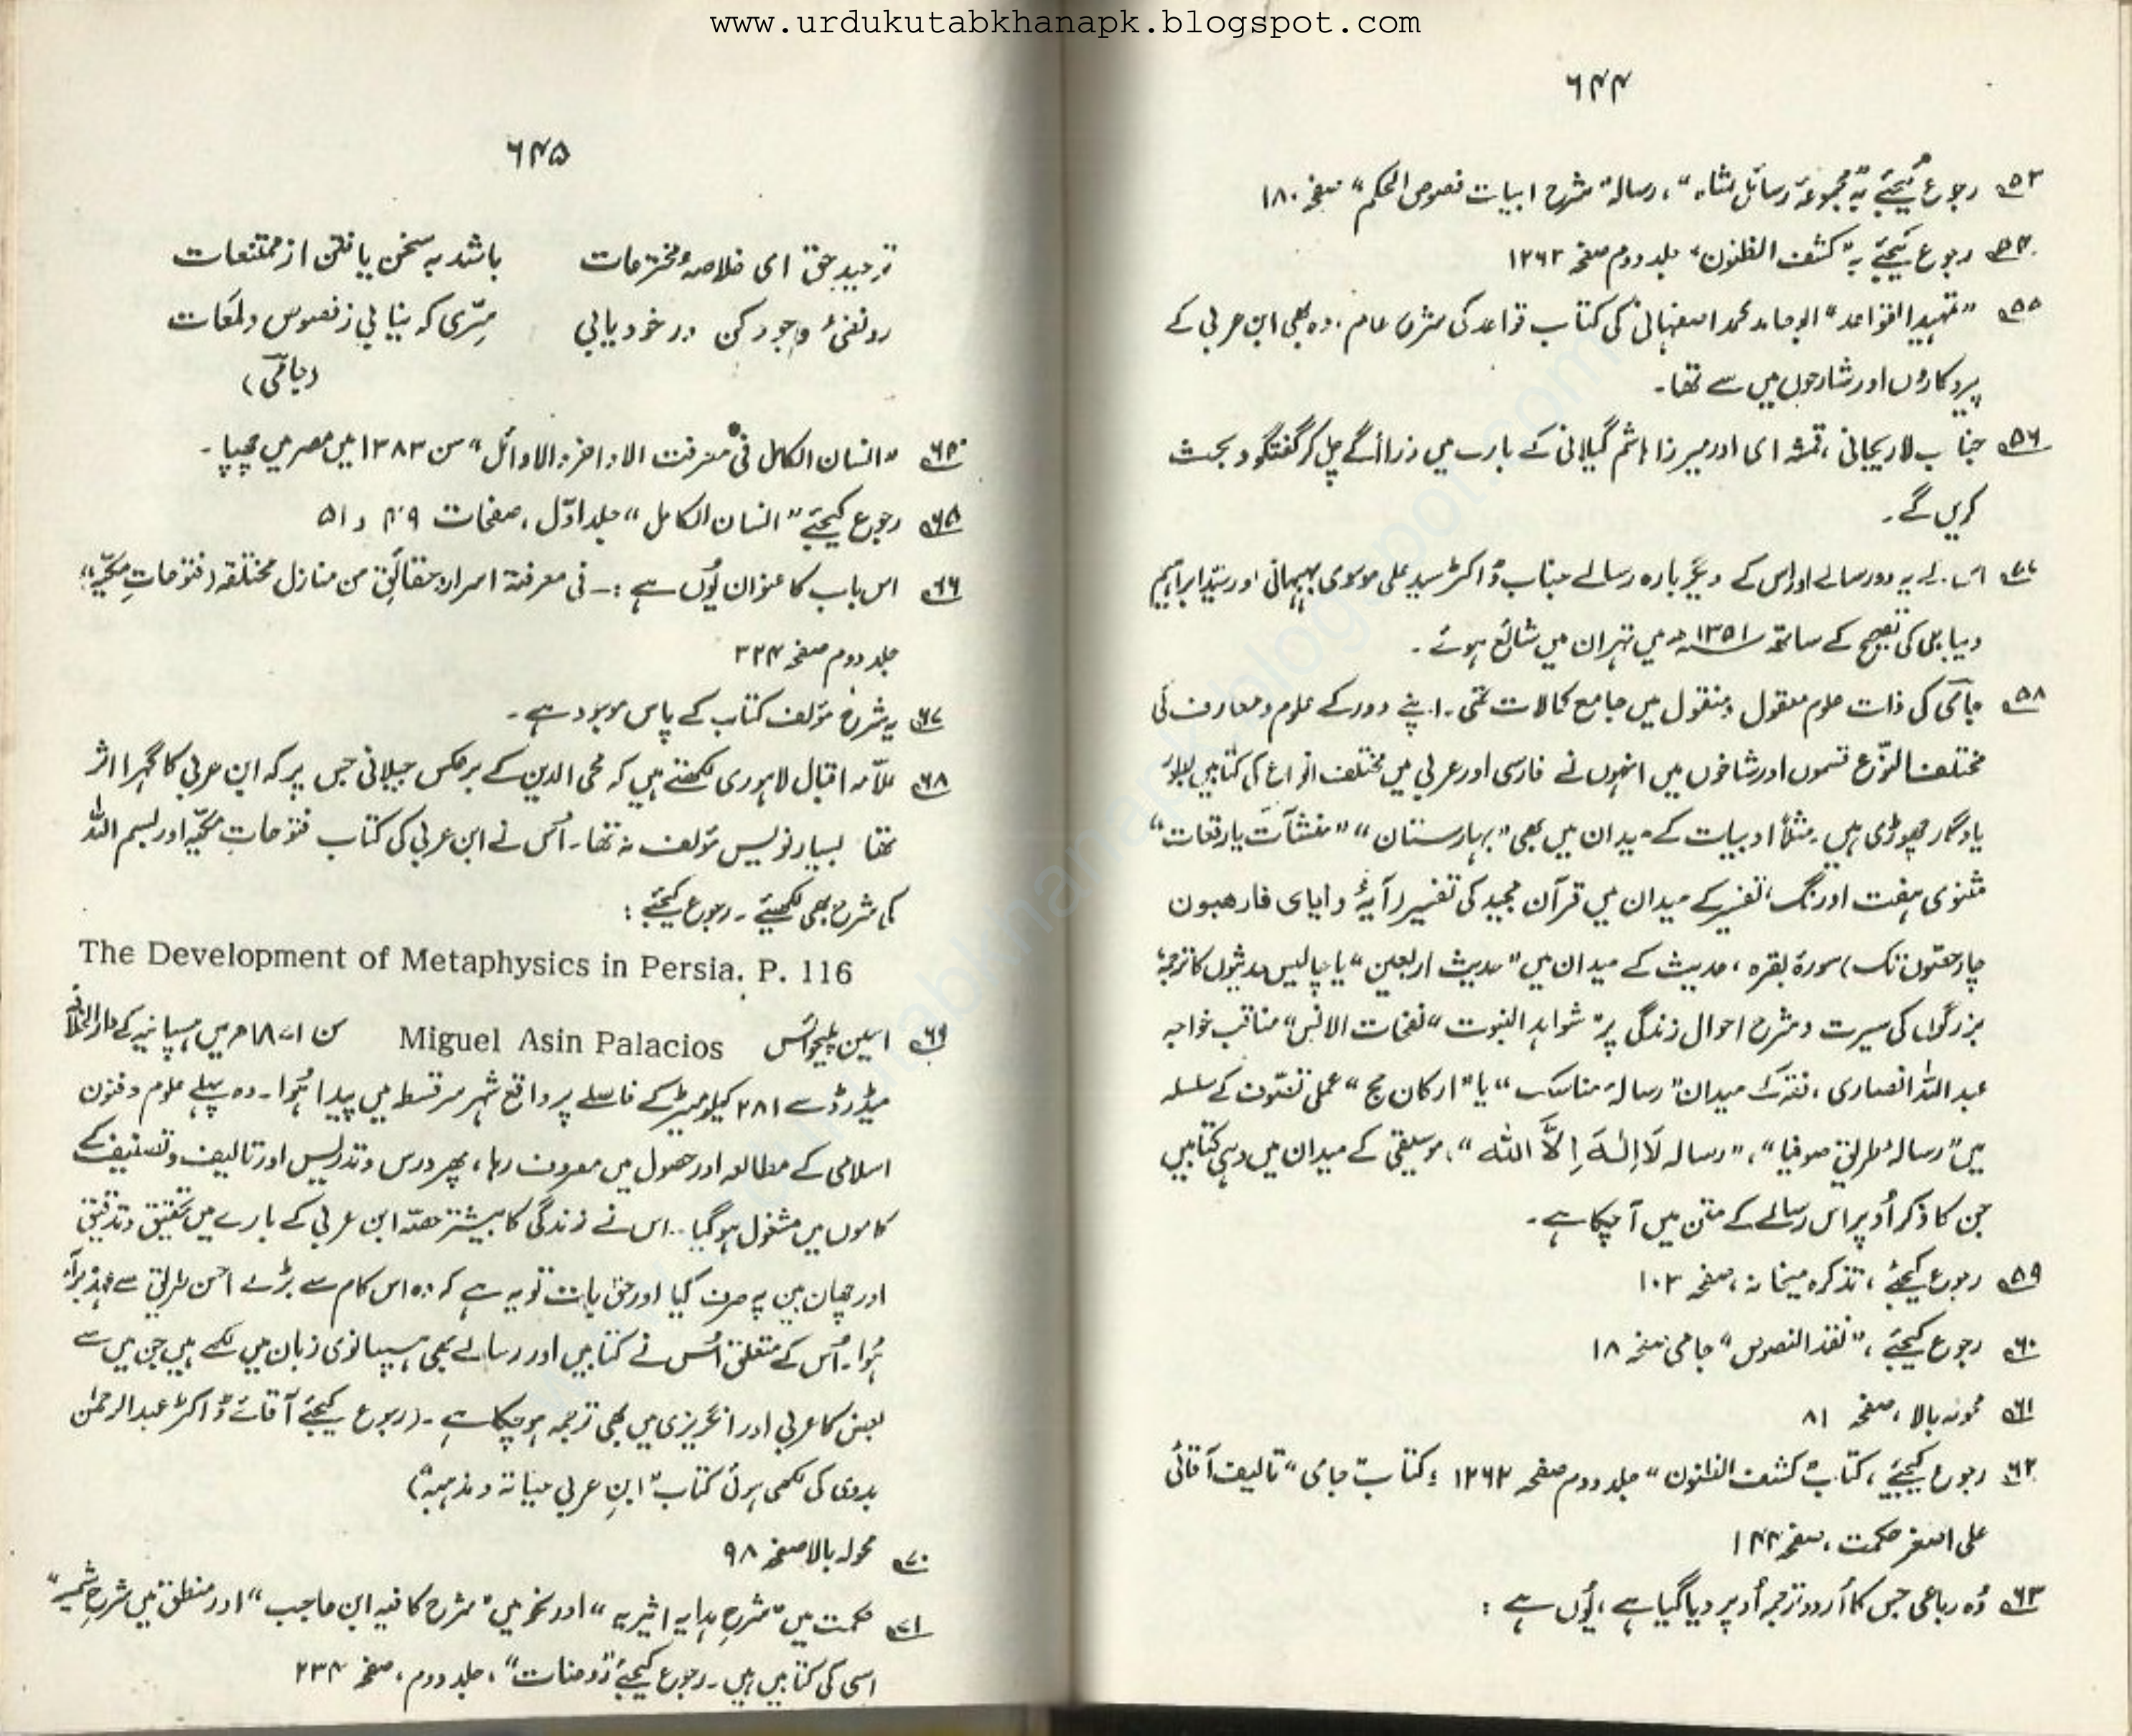 www.urdukutabkhanapk.blogspot.com
۶۴۴
۵۳ رجوع کیجئے بہ "مجموعۂ رسائل شاہ"، رسالہ "شرح ابیات فصوص الحکم" صفحہ ۱۸۰
۵۴ رجوع کیجئے بہ "کشف الظنون" جلد دوم صفحہ ۱۲۶۲
۵۵ "تمہید القواعد" ابوحامد محمد اصفہانی کی کتاب قواعد کی شرح عام۔ وہ بھی ابن عربی کے
پیروکاروں اور شارحوں میں سے تھا۔
۵۶ جناب لاریجانی، قمشہ ای اور میرزا ہاشم گیلانی کے بارے میں ذرا آگے چل کر گفتگو و بحث
کریں گے۔
۵۷ یہ دو رسالے اور اس کے دیگر بارہ رسالے جناب ڈاکٹر سید علی موسوی بہبہانی اور سید ابراہیم
دیباجی کی تصحیح کے ساتھ سنہ ۱۳۵۱ میں تہران میں شائع ہوئے۔
۵۸ جامی کی ذات علوم معقول و منقول میں جامع کمالات تھی۔ اپنے دور کے علوم و معارف کی
مختلف النوع قسموں اور شاخوں میں انہوں نے فارسی اور عربی میں مختلف انواع کی کتابیں بطور
یادگار چھوڑی ہیں۔ مثلاً ادبیات کے میدان میں بھی "بہارستان" "منشآت یا رقعات"
مثنوی ہفت اورنگ، تفسیر کے میدان میں قرآن مجید کی تفسیر (آیۂ وایای فارھبون
چار حصّوں تک) سورۂ بقرہ، حدیث کے میدان میں "حدیث اربعین" یا چالیس حدیثوں کا ترجمہ،
بزرگوں کی سیرت و شرح احوال زندگی پر "شواہد النبوت" "نفحات الانس" مناقب خواجہ
عبداللہ انصاری، فقہ کے میدان "رسالۂ مناسک" یا "ارکان حج" عملی تصوّف کے سلسلہ
میں "رسالۂ طریق صوفیا"، "رسالہ لَا اِلٰہَ اِلاَّ اللہ"، موسیقی کے میدان میں وہی کتابیں
جن کا ذکر اُوپر اس رسالے کے متن میں آ چکا ہے۔
۵۹ رجوع کیجئے، تذکرہ میخانہ، صفحہ ۱۰۳
۶۰ رجوع کیجئے، "نقد النصوص" جامی صفحہ ۱۸
۶۱ محولہ بالا، صفحہ ۸۱
۶۲ رجوع کیجئے، کتاب "کشف الظنون" جلد دوم صفحہ ۱۲۶۲؛ کتاب "جامی" تالیف آقائی
علی اصغر حکمت، صفحہ ۱۴۴
۶۳ وُہ رباعی جس کا اُردو ترجمہ اُوپر دیا گیا ہے، یُوں ہے :
۶۴۵
توحید حق ای خلاصۂ مخترعات باشد بہ سخن یافتن از ممتنعات
رو نفیٔ وجود کن در خود یابی سِرّی کہ نیابی ز فصوص و لمَعات
(جامی)
۶۴ "انسان الکامل فی معرفت الاواخر والاوائل" سن ۱۳۸۳ میں مصر میں چھپا۔
۶۵ رجوع کیجئے "انسان الکامل" جلد اوّل، صفحات ۴۹ و ۵۱
۶۶ اس باب کا عنوان یُوں ہے :۔ فی معرفۃ اسرار و حقائق من منازل مختلفہ (فتوحاتِ مکیّہ)،
جلد دوم صفحہ ۳۳۴
۶۷ یہ شرح مؤلف کتاب کے پاس موجود ہے۔
۶۸ علّامہ اقبال لاہوری لکھتے ہیں کہ محی الدین کے برعکس جیلانی جس پر کہ ابن عربی کا گہرا اثر
تھا بسیار نویس مؤلف نہ تھا۔ اُس نے ابن عربی کی کتاب فتوحات مکیّہ اور بسم اللہ
کی شرح بھی لکھیئے۔ رجوع کیجئے :
The Development of Metaphysics in Persia. P. 116
۶۹ اسین پلیچوئس Miguel Asin Palacios سن ۱۸۷۱ میں ہسپانیہ کے دارالخلافے
میڈرڈ سے ۲۸۱ کیلومیٹر کے فاصلے پر واقع شہر سرقسطہ میں پیدا ہُوا۔ وہ پہلے علوم و فنون
اسلامی کے مطالعہ اور حصول میں مصروف رہا، پھر درس و تدریس اور تالیف و تصنیف کے
کاموں میں مشغول ہو گیا۔ اس نے زندگی کا بیشتر حصّہ ابن عربی کے بارے میں تحقیق و تدقیق
اور چھان بین پہ صرف کیا اور حق بات تو یہ ہے کہ وہ اس کام سے بڑے احسن طریق سے عہدہ برآ
ہُوا۔ اُس کے متعلق اُس نے کتابیں اور رسالے بھی ہسپانوی زبان میں لکھے ہیں جن میں سے
بعض کا عربی اور انگریزی میں بھی ترجمہ ہو چکا ہے۔ (رجوع کیجئے آقائے ڈاکٹر عبدالرحمٰن
بدوی کی لکھی ہوئی کتاب "ابنِ عربی حیاتہ و مذہبہ")
۷۰ محولہ بالا صفحہ ۹۸
۷۱ حکمت میں "شرحِ ہدایہ اثیریہ" اور نحو میں "شرح کافیہ ابن حاجب" اور منطق میں "شرحِ شمسیہ"
اسی کی کتابیں ہیں۔ رجوع کیجئے "روضات"، جلد دوم، صفحہ ۲۳۴